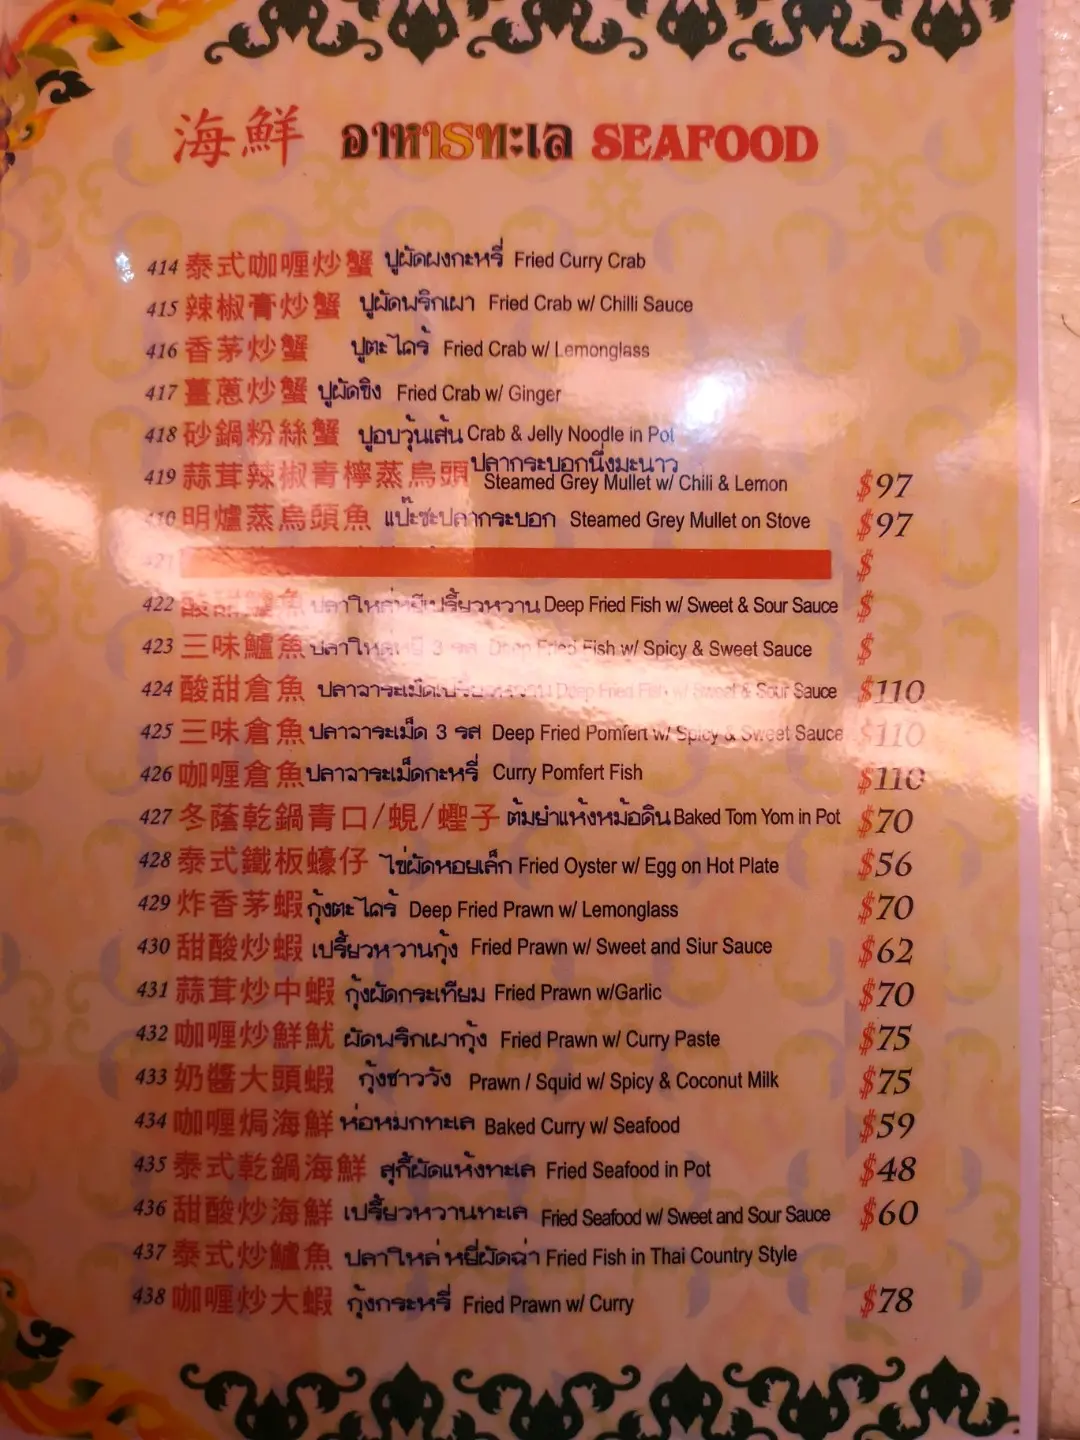 海鮮 อาหารทะเล SEAFOOD
414 泰式咖喱炒蟹 ปูผัดผงกะหรี่ Fried Curry Crab
415 辣椒膏炒蟹 ปูผัดพริกเผา Fried Crab w/ Chilli Sauce
416 香茅炒蟹 ปูตะไคร้ Fried Crab w/ Lemonglass
417 薑蔥炒蟹 ปูผัดขิง Fried Crab w/ Ginger
418 砂鍋粉絲蟹 ปูอบวุ้นเส้น Crab & Jelly Noodle in Pot
419 蒜茸辣椒青檸蒸烏頭 ปลากระบอกนึ่งมะนาว Steamed Grey Mullet w/ Chili & Lemon $97
410 明爐蒸烏頭魚 แป๊ะซะปลากระบอก Steamed Grey Mullet on Stove $97
421 $
422 酸甜鱸魚 ปลาใหล่หยีเปรี้ยวหวาน Deep Fried Fish w/ Sweet & Sour Sauce $
423 三味鱸魚 3 รส Deep Fried Fish w/ Spicy & Sweet Sauce $
424 酸甜倉魚 ปลาจาระเม็ดเปรี้ยวหวาน Deep Fried Fish w/ Sweet & Sour Sauce $110
425 三味倉魚 ปลาจาระเม็ด 3 รส Deep Fried Pomfert w/ Spicy & Sweet Sauce $110
426 咖喱倉魚 ปลาจาระเม็ดกะหรี่ Curry Pomfert Fish $110
427 冬蔭乾鍋青口/蜆/蟶子 ต้มยำแห้งหม้อดิน Baked Tom Yom in Pot $70
428 泰式鐵板蠔仔 ไข่ผัดหอยเล็ก Fried Oyster w/ Egg on Hot Plate $56
429 炸香茅蝦 กุ้งตะไคร้ Deep Fried Prawn w/ Lemonglass $70
430 甜酸炒蝦 เปรี้ยวหวานกุ้ง Fried Prawn w/ Sweet and Siur Sauce $62
431 蒜茸炒中蝦 กุ้งผัดกระเทียม Fried Prawn w/Garlic $70
432 咖喱炒鮮魷 ผัดพริกเผากุ้ง Fried Prawn w/ Curry Paste $75
433 奶醬大頭蝦 กุ้งชาววัง Prawn / Squid w/ Spicy & Coconut Milk $75
434 咖喱焗海鮮 ห่อหมกทะเล Baked Curry w/ Seafood $59
435 泰式乾鍋海鮮 สุกี้ผัดแห้งทะเล Fried Seafood in Pot $48
436 甜酸炒海鮮 เปรี้ยวหวานทะเล Fried Seafood w/ Sweet and Sour Sauce $60
437 泰式炒鱸魚 ปลาใหล่หยีผัดฉ่า Fried Fish in Thai Country Style
438 咖喱炒大蝦 กุ้งกระหรี่ Fried Prawn w/ Curry $78